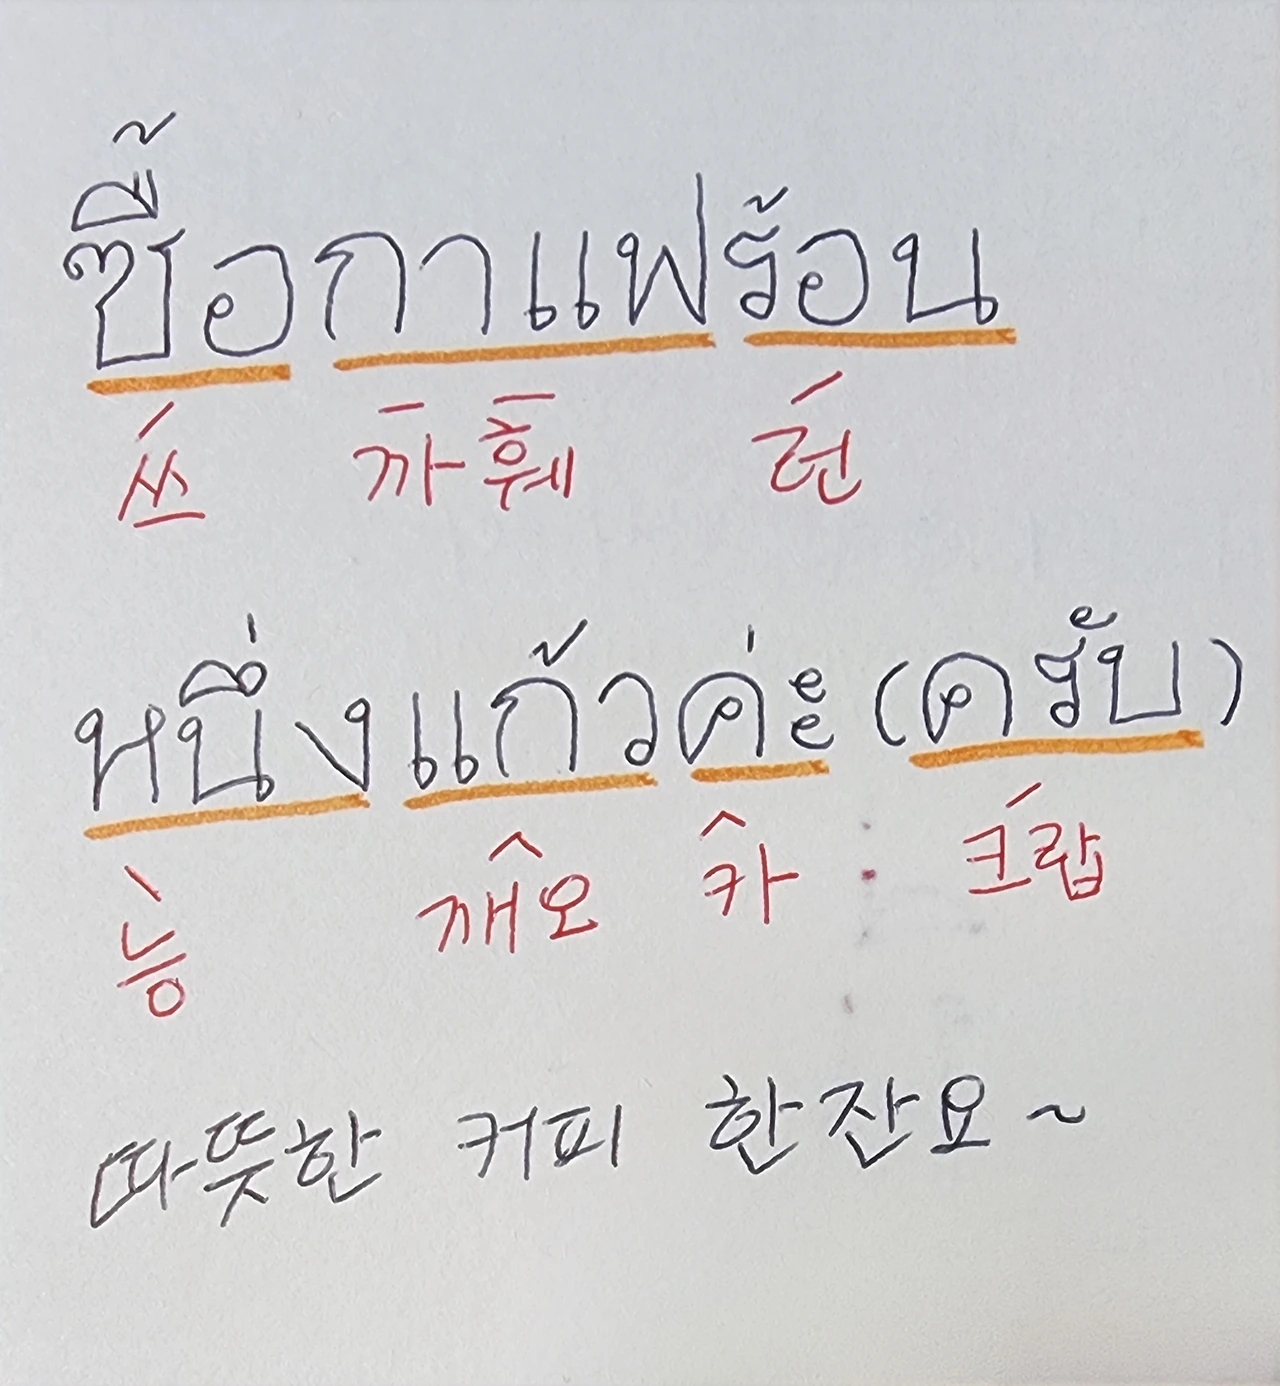 ซื้อกาแฟร้อน
쓰 까훼 런
หนึ่งแก้วค่ะ (ครับ)
능 깨오 카 크랍
따뜻한 커피 한잔요~